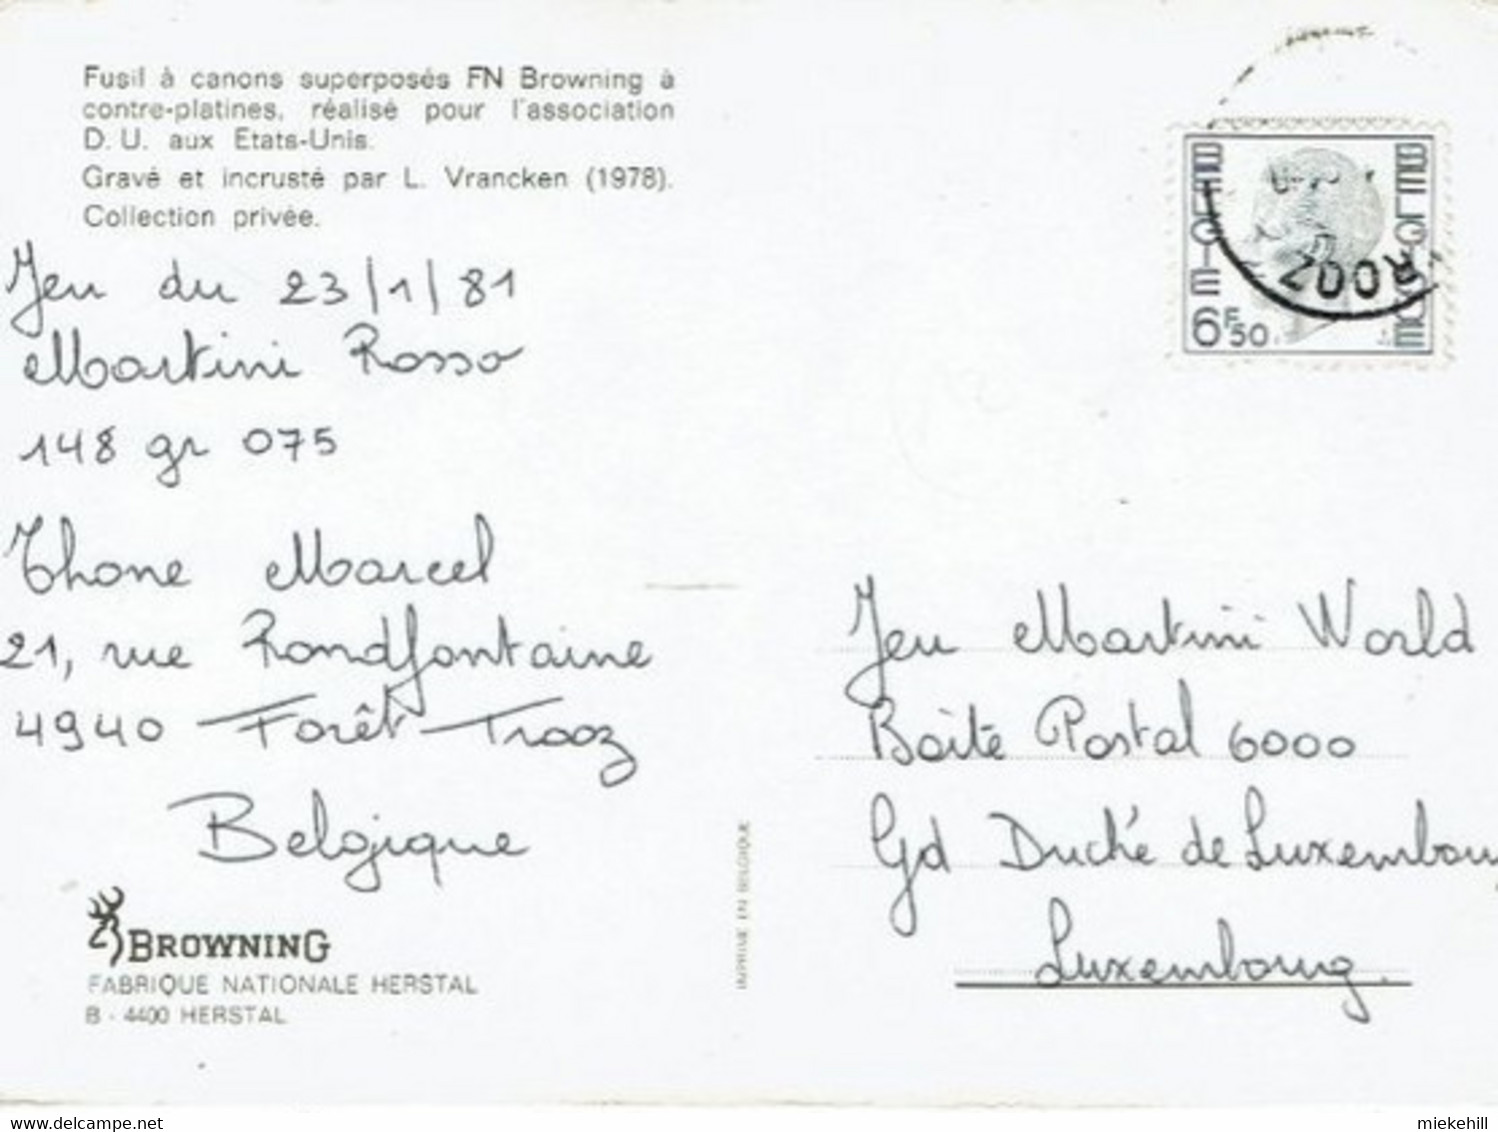 Fusil à canons superposés FN Browning à
contre-platines, réalisé pour l'association
D. U. aux Etats-Unis.
Gravé et incrusté par L. Vrancken (1978).
Collection privée.
Jeu du 23/1/81
Martini Rosso
148 gr 075
Thone Marcel
21, rue Rondfontaine
4940 Forêt-Trooz
Belgique
BROWNING
FABRIQUE NATIONALE HERSTAL
B - 4400 HERSTAL
IMPRIME EN BELGIQUE
BELGIE
BELGIQUE
6F50
ROOZ
Jeu Martini World
Boite Postal 6000
Gd Duché de Luxembou
Luxembourg.
miekehill